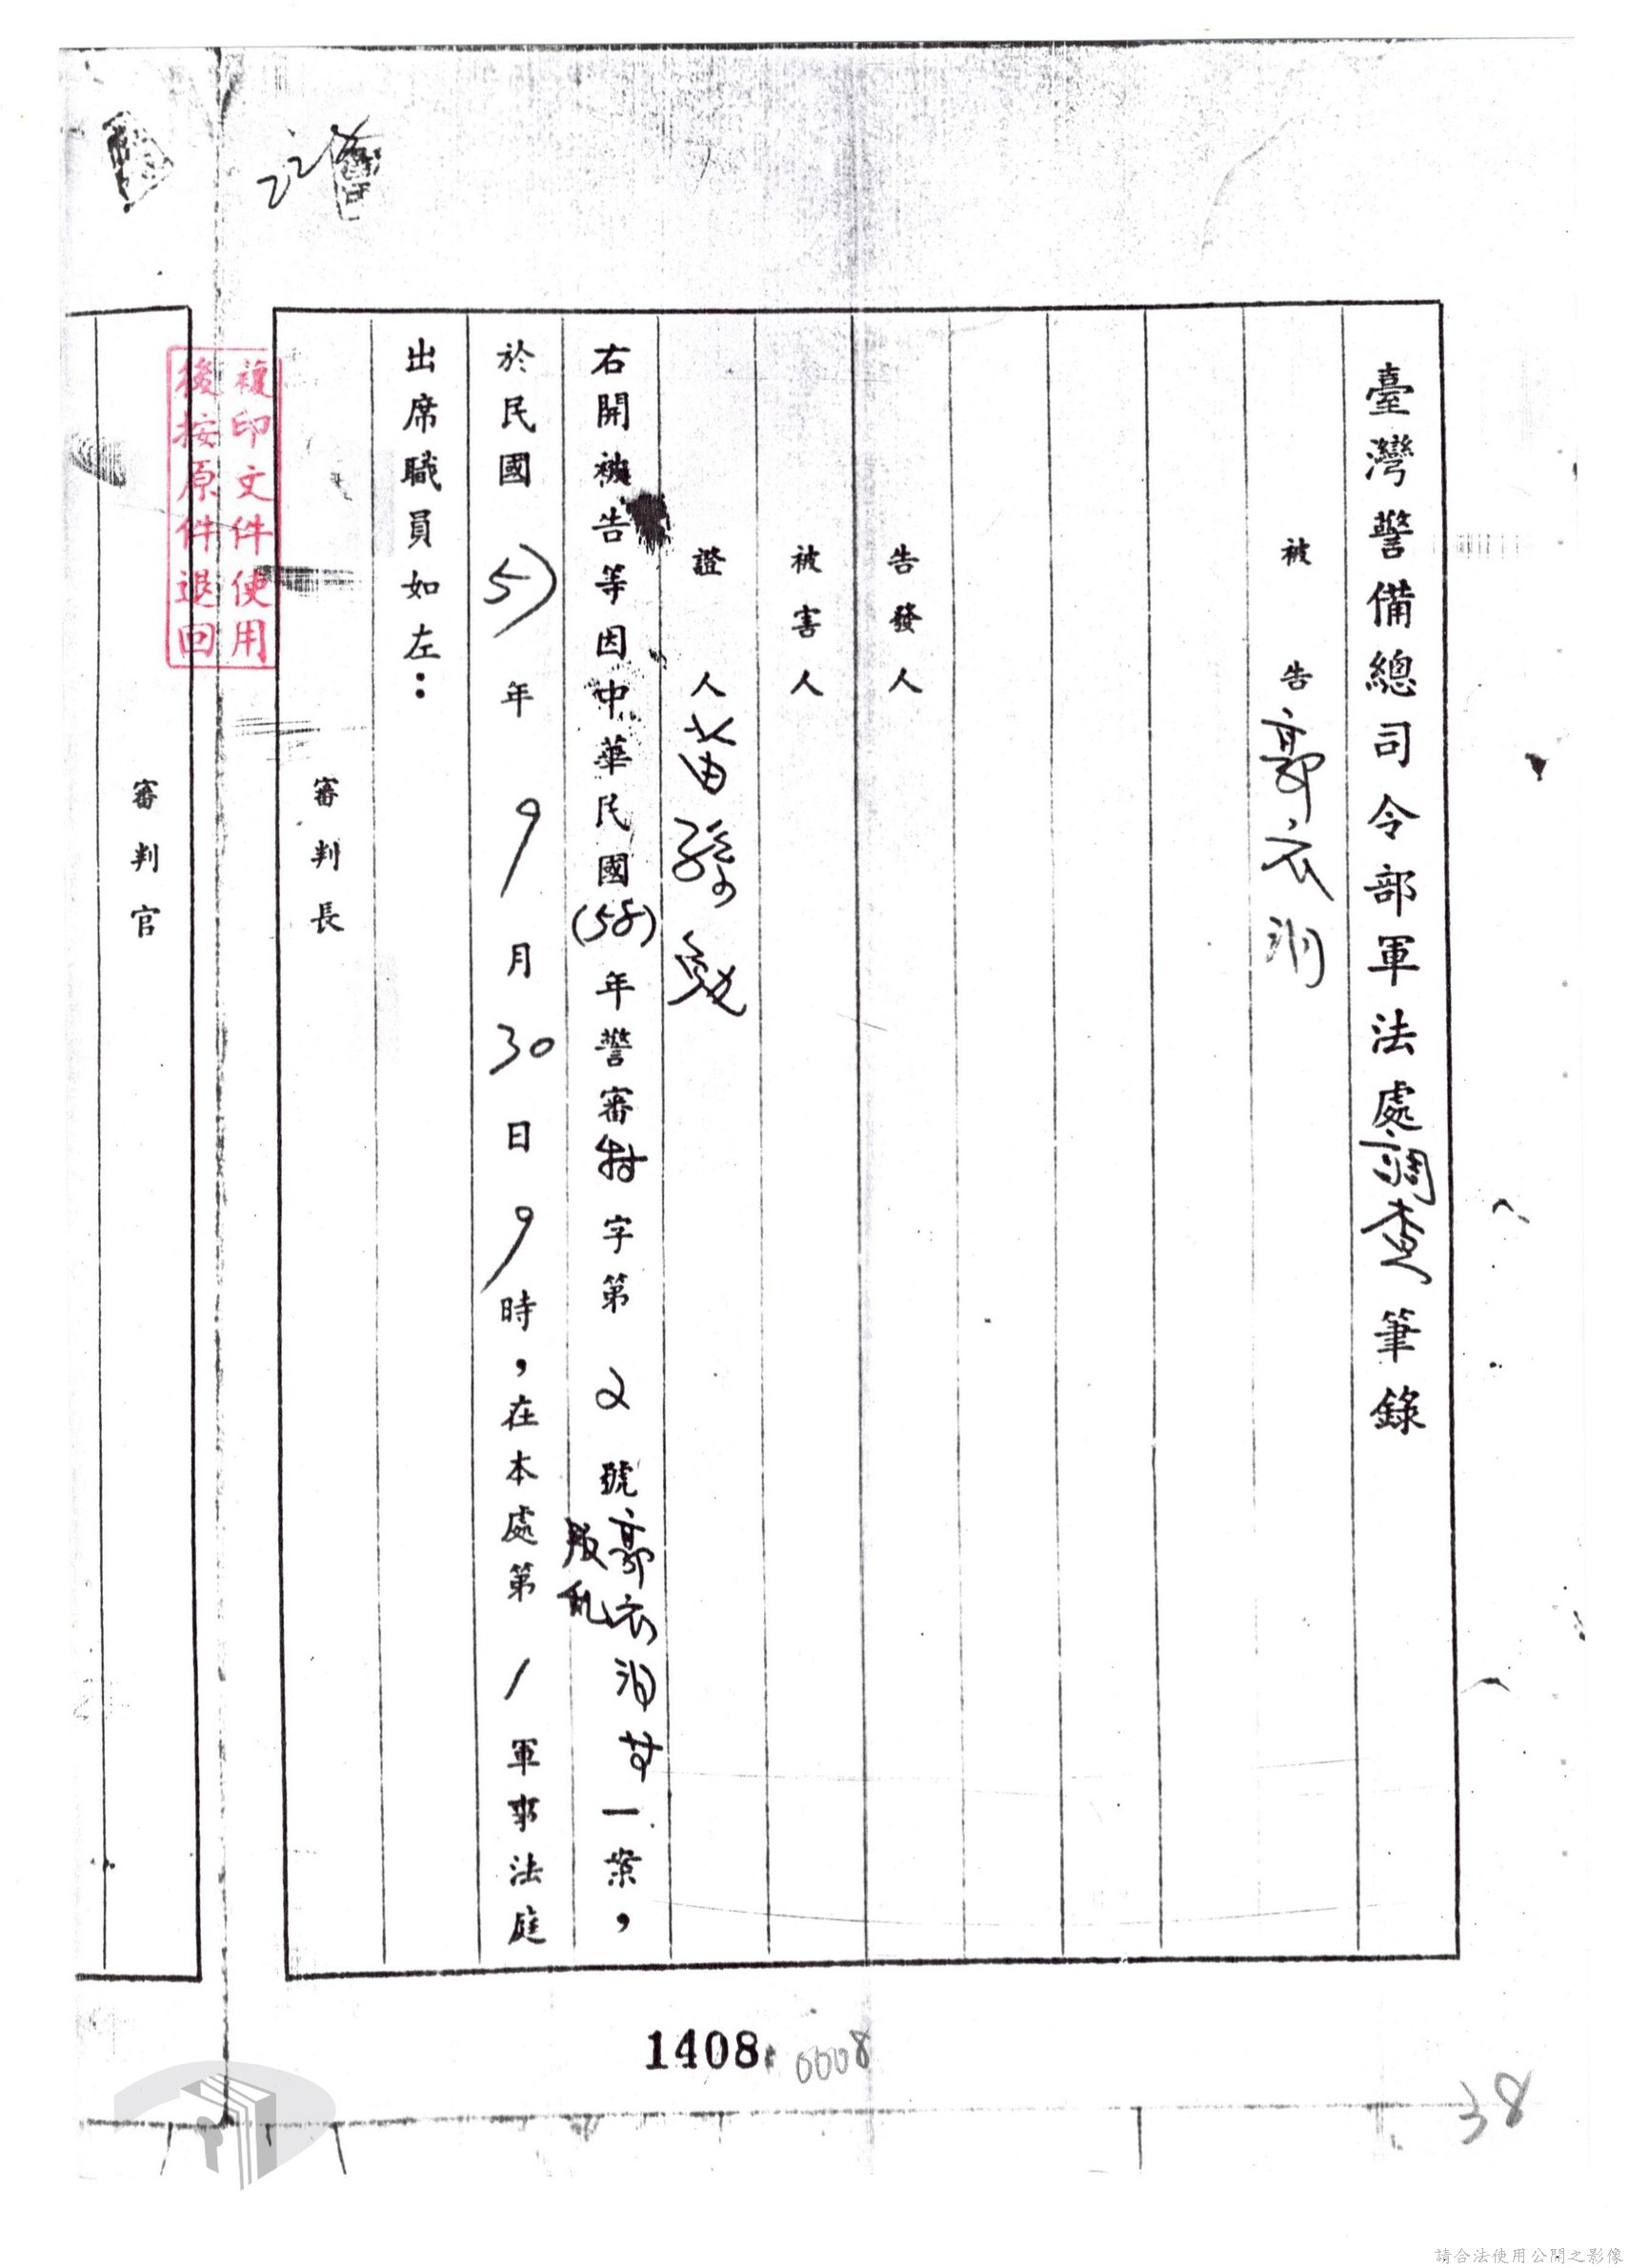 臺灣警備總司令部軍法處調查筆錄
被告郭衣洞
告發人
被害人
證人
右開被告等因中華民國(58)年警審特字第2號郭衣洞等叛乱一案，
於民國57年9月30日9時，在本處第1軍事法庭
出席職員如左：
審判長
複印文件使用
後按原件退回
審判官
1408
0008
38
請合法使用公開之影像